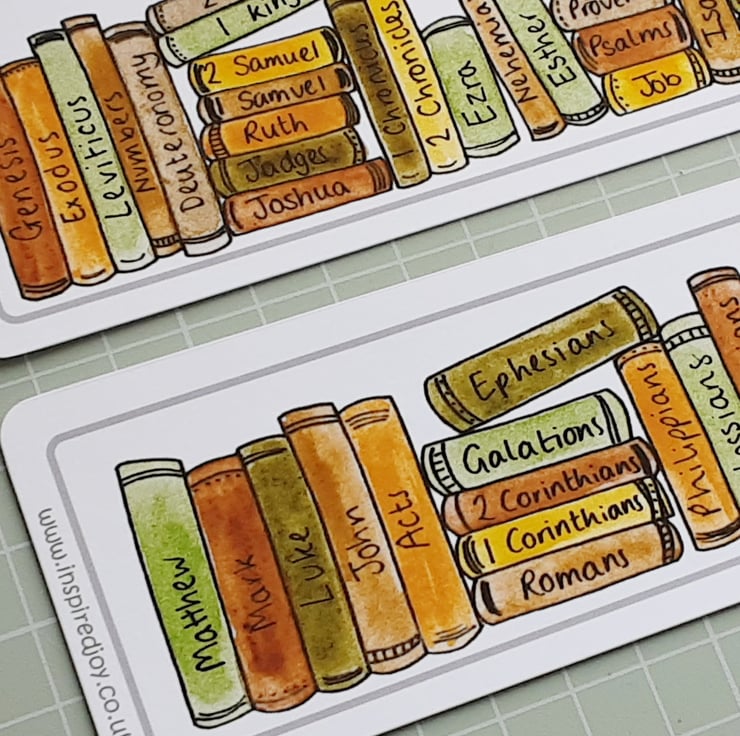 Genesis
Exodus
Leviticus
Numbers
Deuteronomy
2
1 King
2 Samuel
1 Samuel
Ruth
Judges
Joshua
1 Chronicles
2 Chronicles
Ezra
Nehemia
Esther
Prover
Psalms
Job
Isa
Matthew
Mark
Luke
John
Acts
Ephesians
Galations
2 Corinthians
1 Corinthians
Romans
Philippians
ossians
ans
www.inspiredjoy.co.u